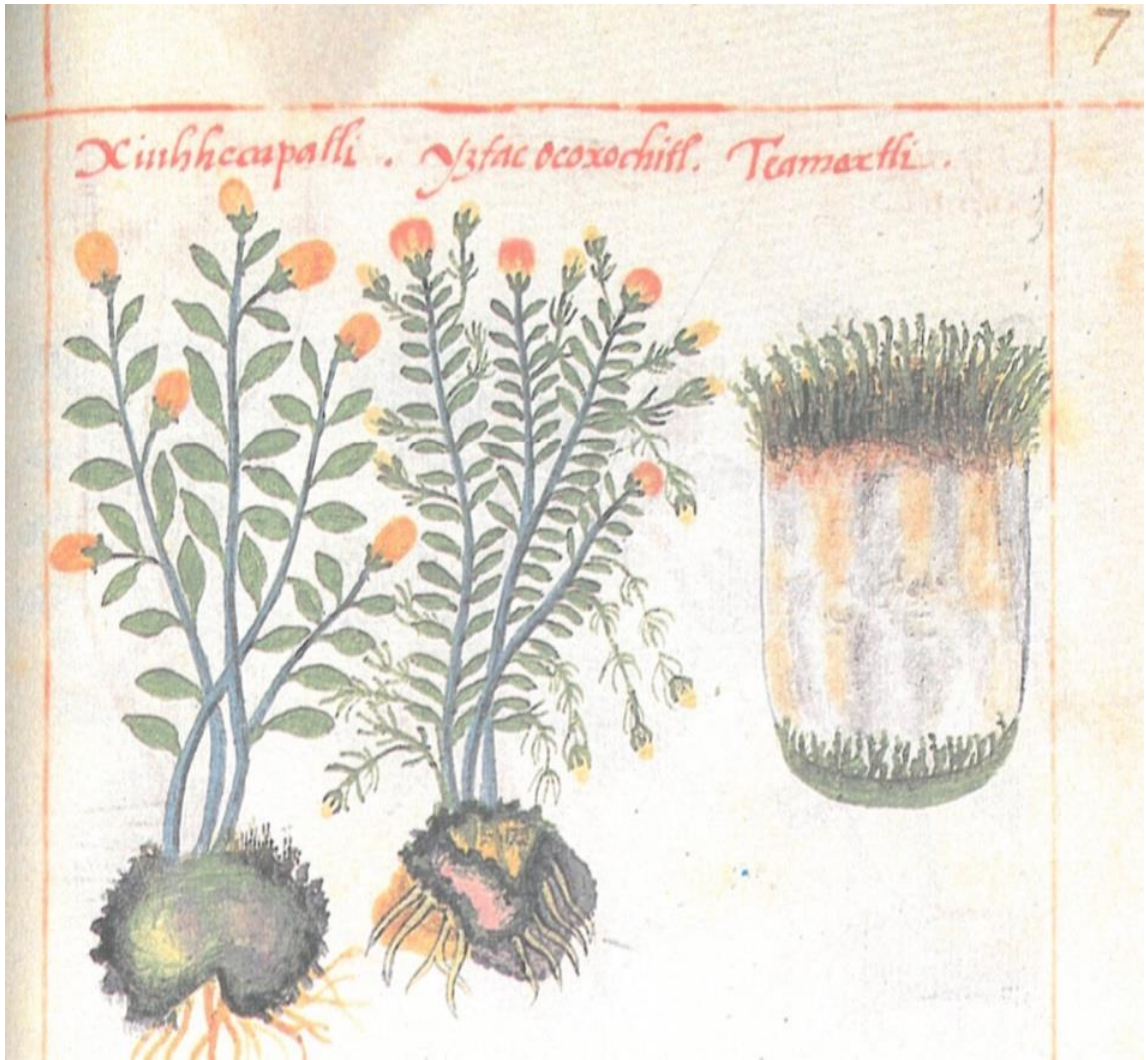 7
Xiuhhecapatli . Yztac ocoxochitl. Teamoxtli .